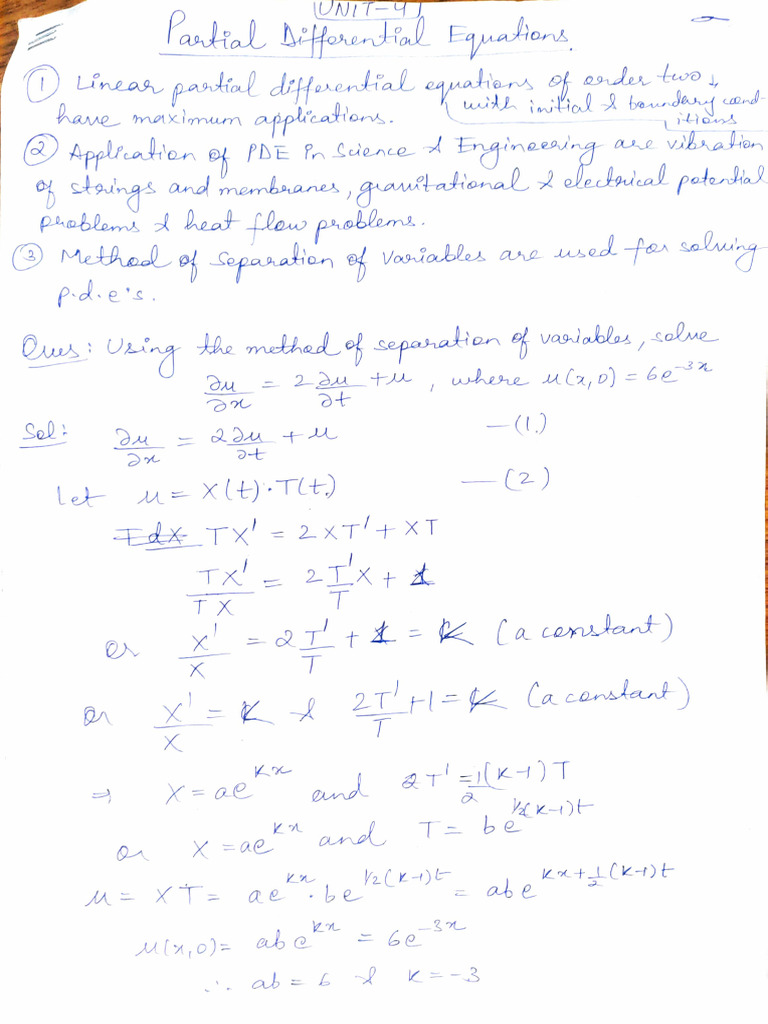 UNIT-4
Partial Differential Equations.
① Linear partial differential equations of order two
with initial & boundary cond-
have maximum applications.
itions
② Application of PDE in Science & Engineering are vibration
of strings and membranes, gravitational & electrical potential
problems & heat flow problems.
③ Method of Separation of Variables are used for solving
p.d.e's.
Ques: Using the method of separation of variables, solve
∂u/∂x = 2 ∂u/∂t + u , where u(x,0) = 6e^{-3x}
Sol: ∂u/∂x = 2∂u/∂t + u —(1.)
Let u = X(t)·T(t.) —(2)
TX' = 2XT' + XT
TX'/TX = 2T'/T X + 1
or X'/X = 2T'/T + 1 = K (a constant)
or X'/X = K & 2T'/T + 1 = K (a constant)
⇒ X = ae^{Kx} and 2T' = 1/2 (K-1)T
or X = ae^{Kx} and T = be^{1/2(K-1)t}
u = XT = ae^{Kx}·be^{1/2(K-1)t} = abe^{Kx+1/2(K-1)t}
u(x,0) = abe^{Kx} = 6e^{-3x}
∴ ab = 6 & K = -3